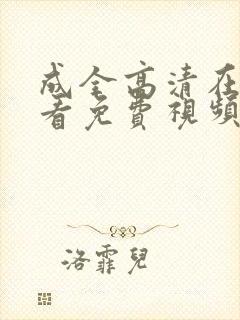 成全高清在
看免費視頻
洛霏兒